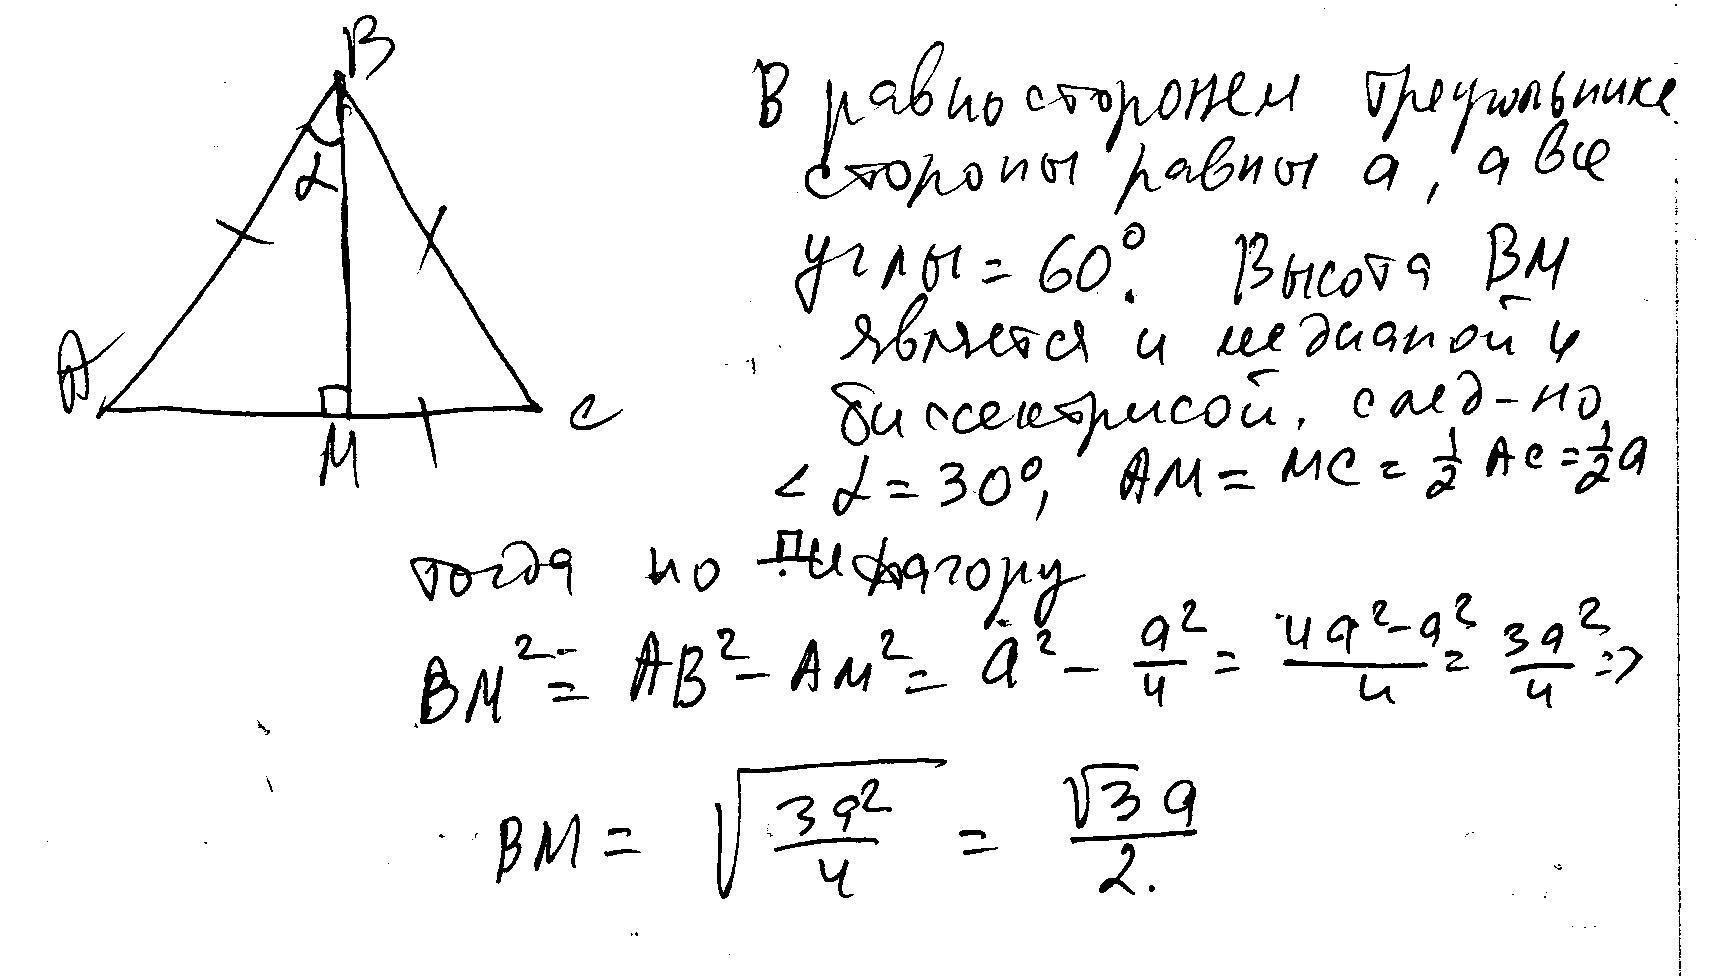 B
α
A
M
C
В равностороннем треугольнике
стороны равны a, а все
углы = 60°. Высота BM
является и медианой и
биссектрисой, след-но,
< α = 30°, AM = MC = 1/2 AC = 1/2 a
тогда по Пифагору
BM² = AB² - AM² = a² - a²/4 = (4a² - a²)/4 = 3a²/4 =>
BM = √(3a²/4) = √3 a/2.